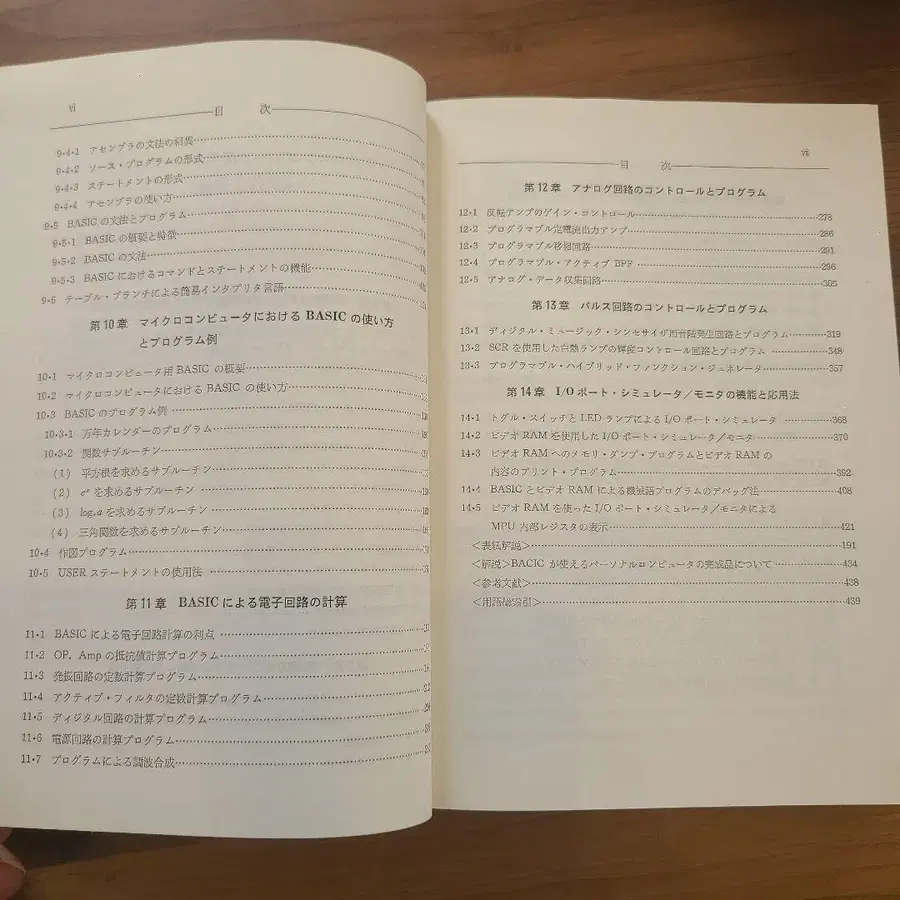 vi
目 次
9・4・1 アセンブラの文法の洞異
9・4・2 ソース・プログラムの形式
9・4・3 ステートメントの形式
9・4・4 アセンブラの使い方
9・5 BASIC の文法とプログラム
9・5・1 BASIC の概要と特徴
9・5・2 BASIC の文法
9・5・3 BASIC におけるコマンドとステートメントの機能
9・6 テーブル・ブランチによる簡易インタプリタ言語
第10章 マイクロコンピュータにおける BASIC の使い方
とプログラム例
10・1 マイクロコンピュータ用 BASIC の概要
10・2 マイクロコンピュータにおける BASIC の使い方
10・3 BASIC のプログラム例
10・3・1 万年カレンダーのプログラム
10・3・2 関数サブルーチン
(1) 平方根を求めるサブルーチン
(2) eˣ を求めるサブルーチン
(3) logₑa を求めるサブルーチン
(4) 三角関数を求めるサブルーチン
10・4 作図プログラム
10・5 USER ステートメントの使用法
第11章 BASIC による電子回路の計算
11・1 BASIC による電子回路計算の利点
11・2 OP. Amp の抵抗値計算プログラム
11・3 発振回路の定数計算プログラム
11・4 アクティブ・フィルタの定数計算プログラム
11・5 ディジタル回路の計算プログラム
11・6 電源回路の計算プログラム
11・7 プログラムによる調波合成
目 次
vii
第12章 アナログ回路のコントロールとプログラム
12・1 反転アンプのゲイン・コントロール 278
12・2 プログラマブル定電流出力アンプ 286
12・3 プログラマブル移相回路 291
12・4 プログラマブル・アクティブ BPF 296
12・5 アナログ・データ収集回路 305
第13章 パルス回路のコントロールとプログラム
13・1 ディジタル・ミュージック・シンセサイザ用音階発生回路とプログラム 319
13・2 SCR を使用した白熱ランプの輝度コントロール回路とプログラム 348
13・3 プログラマブル・ハイブリッド・ファンクション・ジェネレータ 357
第14章 I/O ポート・シミュレータ/モニタの機能と応用法
14・1 トグル・スイッチと LED ランプによる I/O ポート・シミュレータ 368
14・2 ビデオ RAM を使用した I/O ポート・シミュレータ/モニタ 370
14・3 ビデオ RAM へのメモリ・ダンプ・プログラムとビデオ RAM の
内容のプリント・プログラム 392
14・4 BASIC とビデオ RAM による機械語プログラムのデバッグ法 408
14・5 ビデオ RAM を使った I/O ポート・シミュレータ/モニタによる
MPU 内部レジスタの表示 421
<表紙解説> 191
<解説>BACIC が使えるパーソナルコンピュータの完成品について 434
<参考文献> 438
<用語総索引> 439